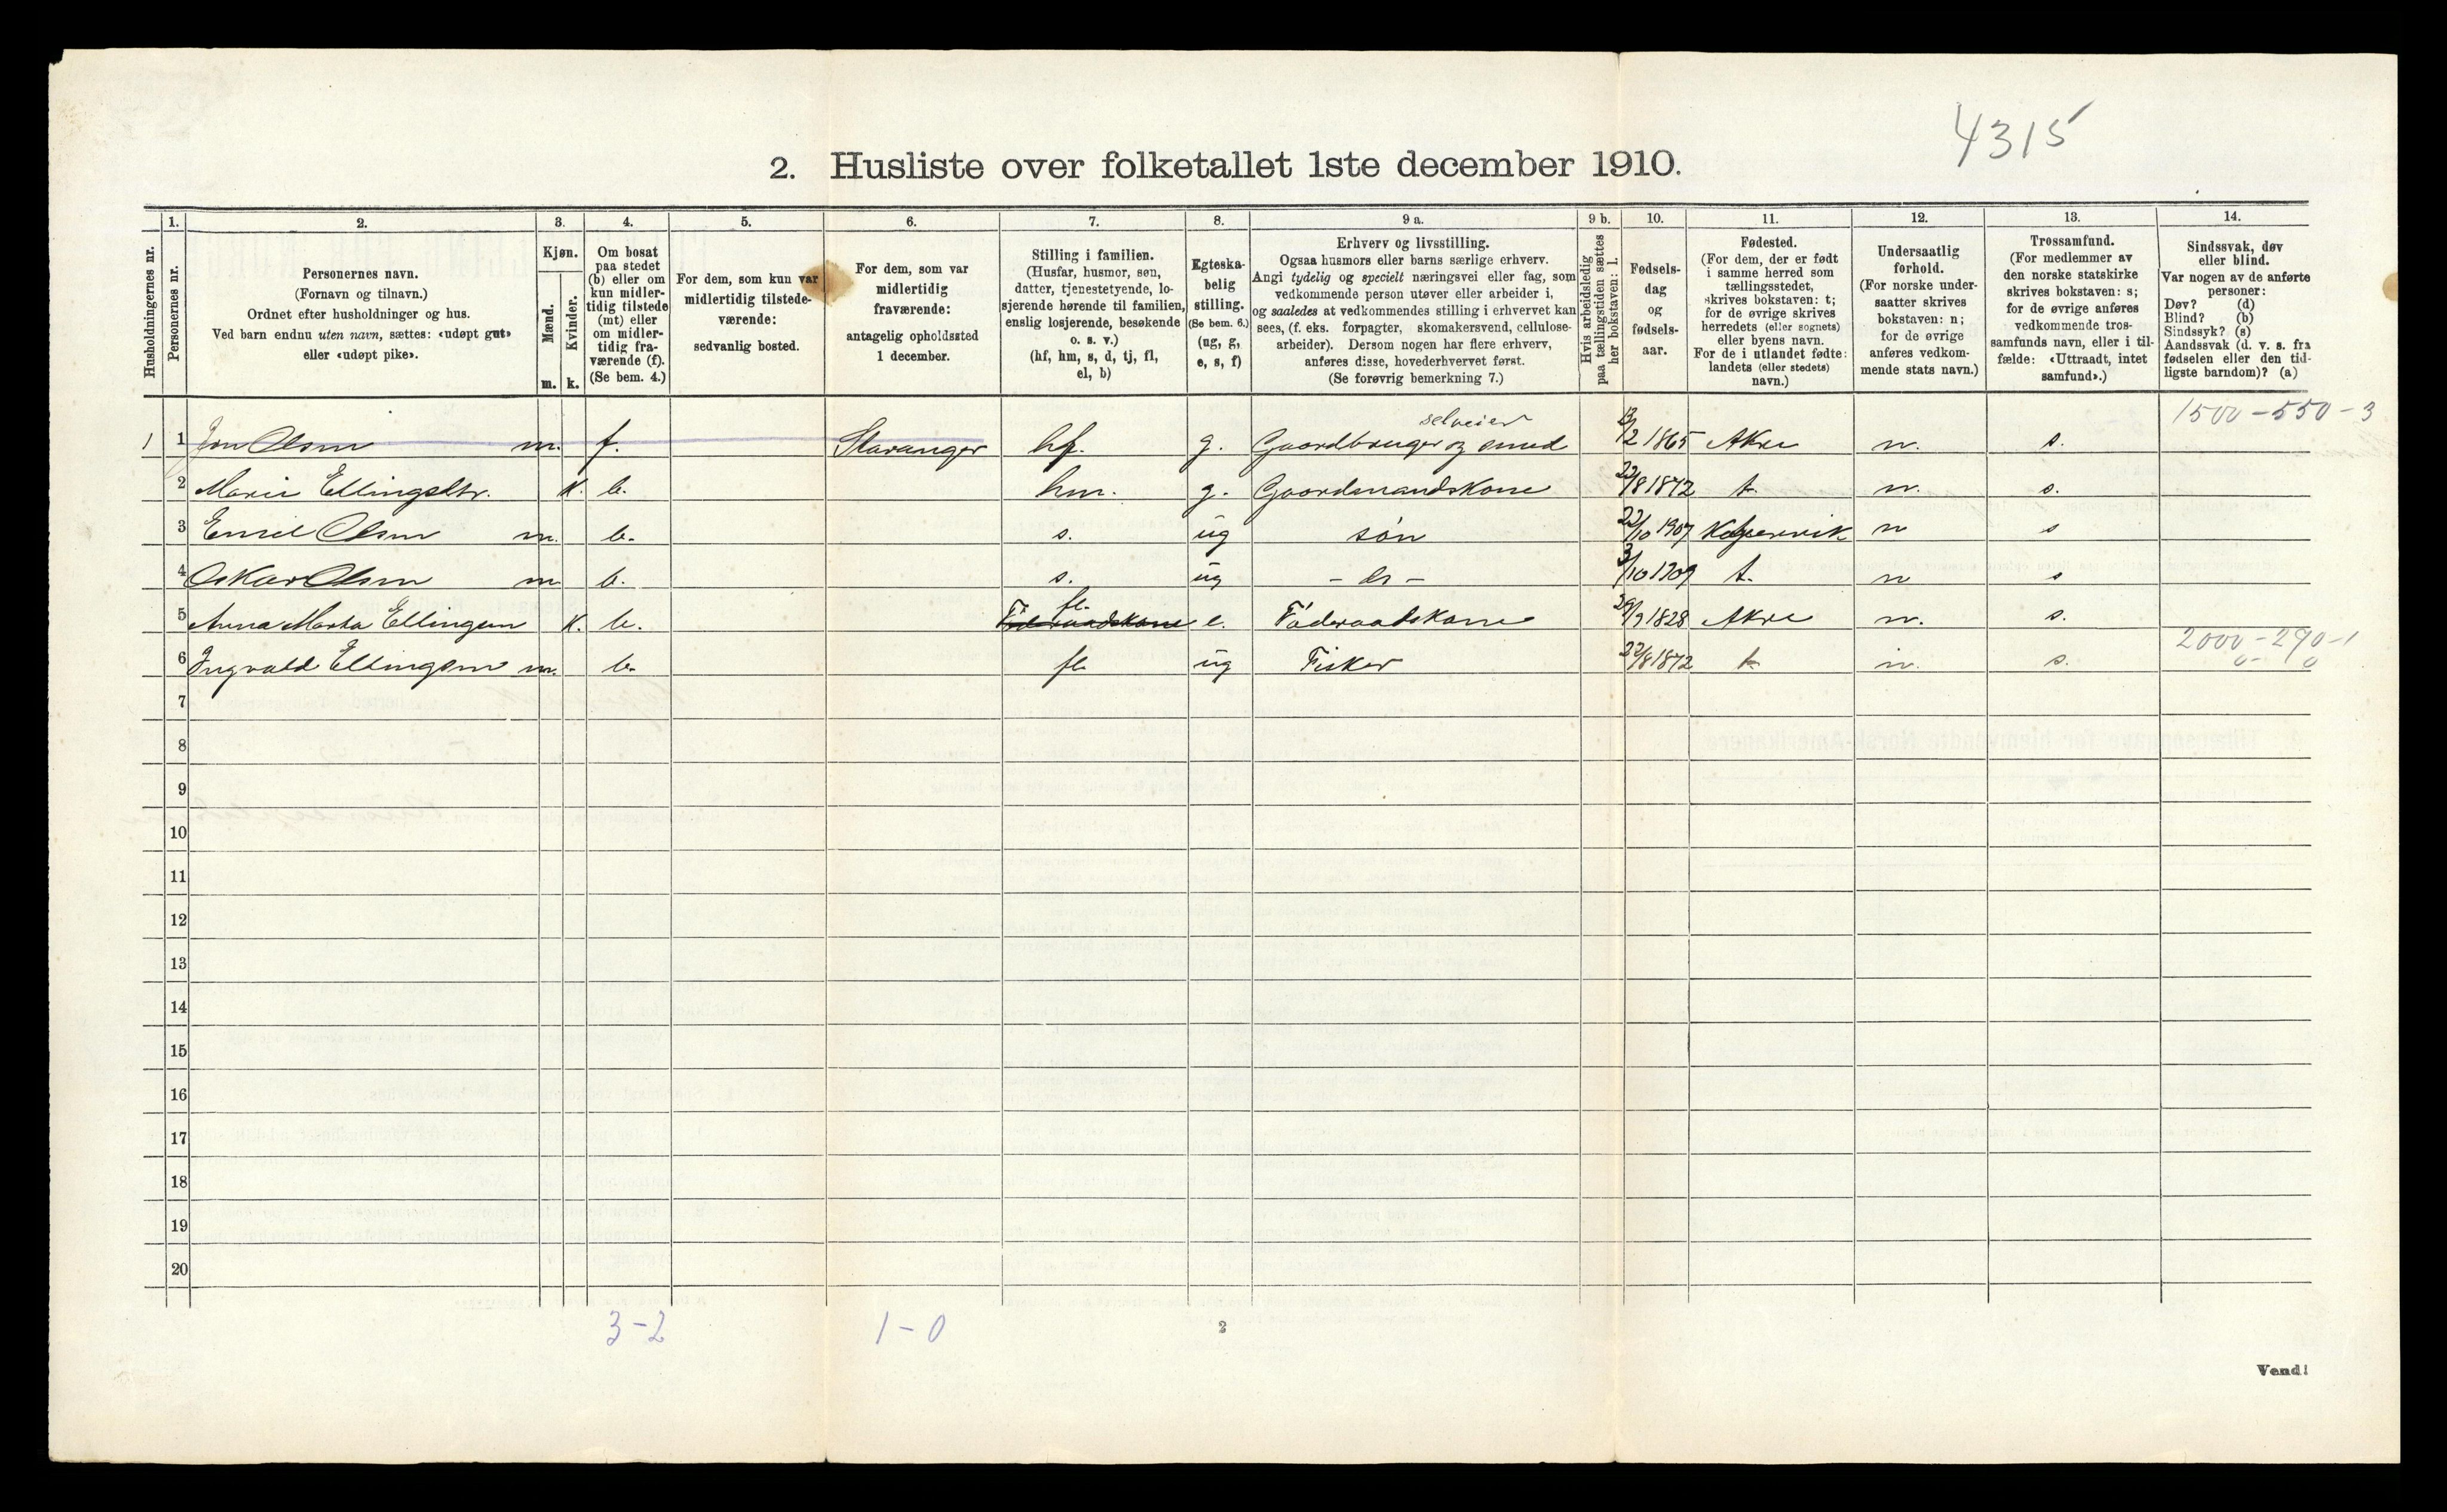 4315
2. Husliste over folketallet 1ste december 1910.
Husholdningernes nr.
1.
Personernes nr.
2.
Personernes navn.
(Fornavn og tilnavn.)
Ordnet efter husholdninger og hus.
Ved barn endnu uten navn, sættes: «udøpt gut»
eller «udøpt pike».
3.
Kjøn.
Mænd.
Kvinder.
m. k.
4.
Om bosat
paa stedet
(b) eller om
kun midler-
tidig tilstede
(mt) eller
om midler-
tidig fra-
værende (f).
(Se bem. 4.)
5.
For dem, som kun var
midlertidig tilstede-
værende:
sedvanlig bosted.
6.
For dem, som var
midlertidig
fraværende:
antagelig opholdssted
1 december.
7.
Stilling i familien.
(Husfar, husmor, søn,
datter, tjenestetyende, lo-
sjerende hørende til familien,
enslig losjerende, besøkende
o. s. v.)
(hf, hm, s, d, tj, fl,
el, b)
8.
Egteska-
belig
stilling.
(Se bem. 6.)
(ug, g,
e, s, f)
9 a.
Erhverv og livsstilling.
Ogsaa husmors eller barns særlige erhverv.
Angi tydelig og specielt næringsvei eller fag, som
vedkommende person utøver eller arbeider i,
og saaledes at vedkommendes stilling i erhvervet kan
sees, (f. eks. forpagter, skomakersvend, cellulose-
arbeider). Dersom nogen har flere erhverv,
anføres disse, hovederhvervet først.
(Se forøvrig bemerkning 7.)
9 b.
Hvis arbeidsledig
paa tællingstiden sættes
her bokstaven: l.
10.
Fødsels-
dag
og
fødsels-
aar.
11.
Fødested.
(For dem, der er født
i samme herred som
tællingsstedet,
skrives bokstaven: t;
for de øvrige skrives
herredets (eller sognets)
eller byens navn.
For de i utlandet fødte:
landets (eller stedets)
navn.)
12.
Undersaatlig
forhold.
(For norske under-
saatter skrives
bokstaven: n;
for de øvrige
anføres vedkom-
mende stats navn.)
13.
Trossamfund.
(For medlemmer av
den norske statskirke
skrives bokstaven: s;
for de øvrige anføres
vedkommende tros-
samfunds navn, eller i til-
fælde: «Uttraadt, intet
samfund».)
14.
Sindssvak, døv
eller blind.
Var nogen av de anførte
personer:
Døv? (d)
Blind? (b)
Sindssyk? (s)
Aandssvak (d. v. s. fra
fødselen eller den tid-
ligste barndom)? (a)
selveier 1500-550-3
1 1 Jon Olsen m. f. Stavanger hf. g. Gaardbruger og smed 13/2 1865 Akre n. s.
2 Marie Ellingsdtr. k. b. hm. g. Gaardmandskone 22/8 1872 t. n. s.
3 Emil Olsen m. b. s. ug søn 22/10 1907 Kopervik n s
4 Oskar Olsen m b. s. ug - do - 3/10 1909 t. n s
5 Anna Marta Ellingsen k. b. fl. e. Føderaadskone 29/9 1828 Akre n. s.
2000-290-1
6 Ingvald Ellingsen m. b. fl ug Fisker 22/8 1872 t n. s. 0- 0
7
8
9
10
11
12
13
14
15
16
17
18
19
20
3-2 1-0
2
Vend!